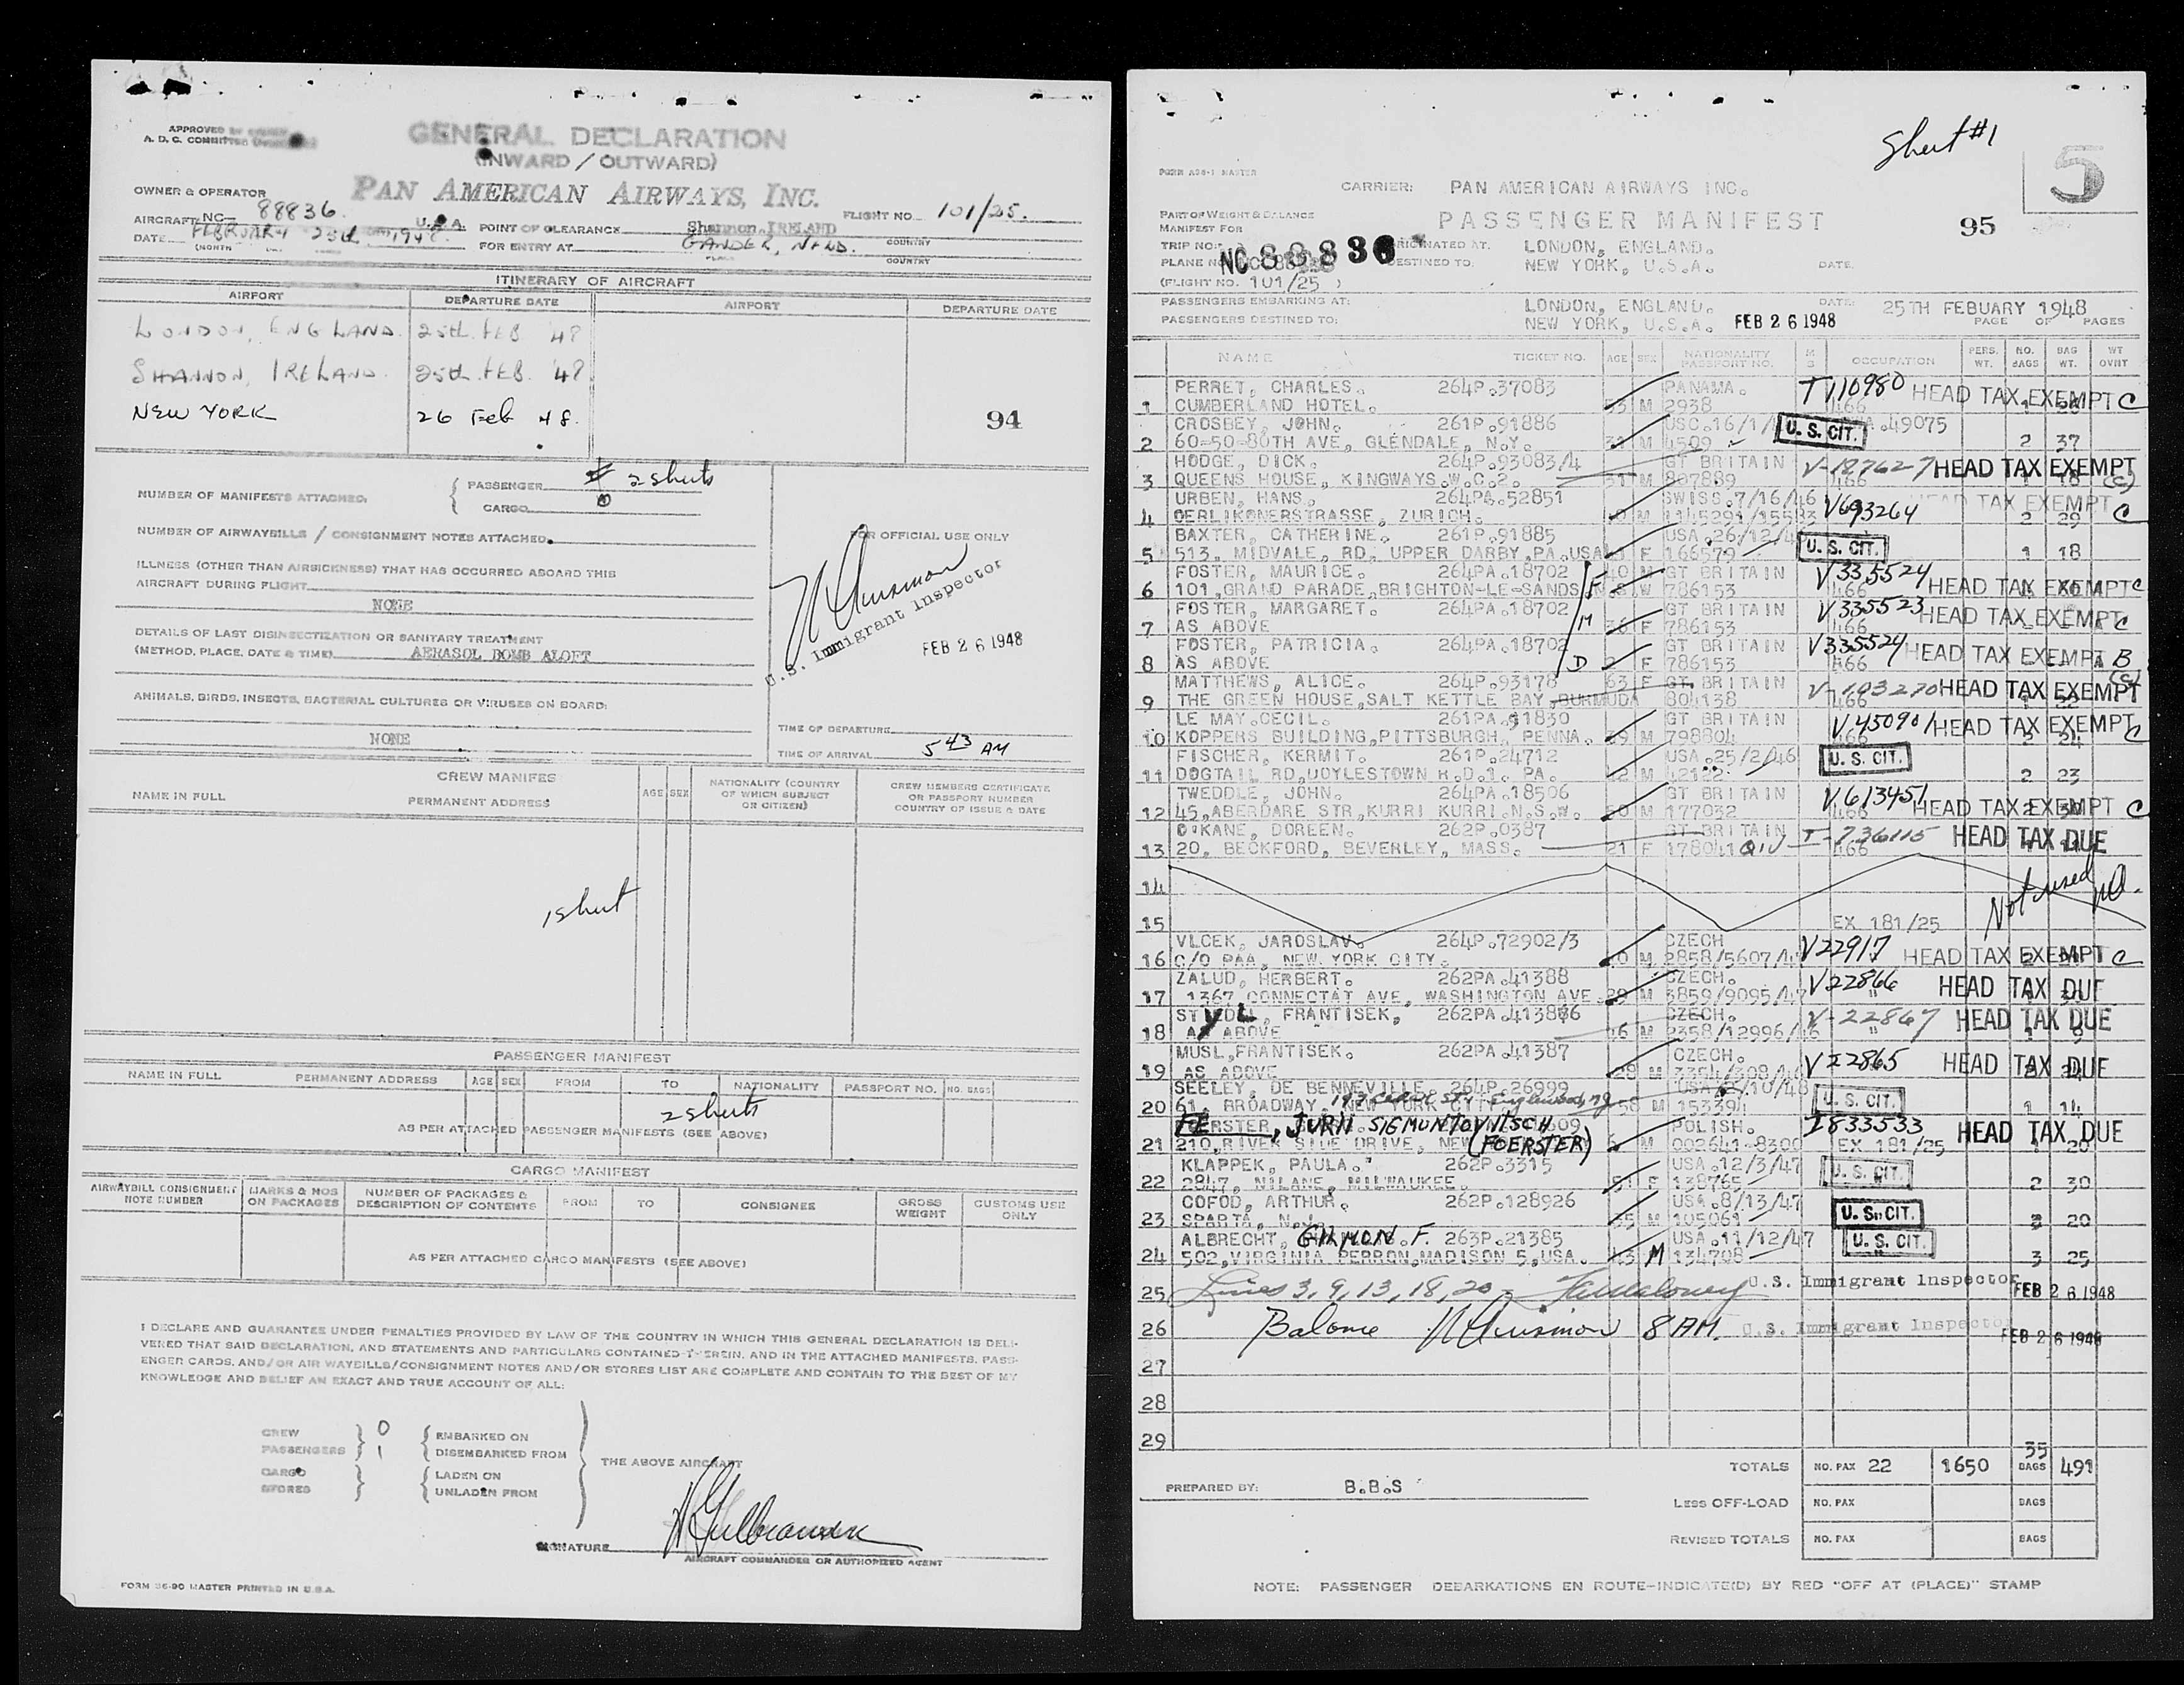 APPROVED
A. D. C. COMMITTEE
GENERAL DECLARATION
(INWARD / OUTWARD)
OWNER & OPERATOR PAN AMERICAN AIRWAYS, INC.
AIRCRAFT NC- 88836 U.S.A. POINT OF CLEARANCE Shannon, IRELAND FLIGHT NO. 101/25.
COUNTRY
DATE FEBRUARY 25th 1948 FOR ENTRY AT GANDER, NFLD.
(MONTH PLACE COUNTRY
ITINERARY OF AIRCRAFT
AIRPORT DEPARTURE DATE AIRPORT DEPARTURE DATE
LONDON, ENGLAND. 25th FEB '48
SHANNON, IRELAND. 25th FEB. '48
NEW YORK 26 Feb 48.
94
NUMBER OF MANIFESTS ATTACHED: PASSENGER 2 sheets
CARGO 0
NUMBER OF AIRWAYBILLS / CONSIGNMENT NOTES ATTACHED.
FOR OFFICIAL USE ONLY
ILLNESS (OTHER THAN AIRSICKNESS) THAT HAS OCCURRED ABOARD THIS
AIRCRAFT DURING FLIGHT
NONE
U.S. Immigrant Inspector
FEB 26 1948
DETAILS OF LAST DISINSECTIZATION OR SANITARY TREATMENT
(METHOD, PLACE, DATE & TIME) AERASOL BOMB ALOFT
ANIMALS, BIRDS, INSECTS, BACTERIAL CULTURES OR VIRUSES ON BOARD:
NONE
TIME OF DEPARTURE
TIME OF ARRIVAL 5 43 AM
CREW MANIFES
NAME IN FULL PERMANENT ADDRESS AGE SEX NATIONALITY (COUNTRY OF WHICH SUBJECT OR CITIZEN) CREW MEMBERS CERTIFICATE OR PASSPORT NUMBER COUNTRY OF ISSUE & DATE
1 sheet
PASSENGER MANIFEST
NAME IN FULL PERMANENT ADDRESS AGE SEX FROM TO NATIONALITY PASSPORT NO. NO. BAGS
2 sheets
AS PER ATTACHED PASSENGER MANIFESTS (SEE ABOVE)
CARGO MANIFEST
AIRWAYBILL CONSIGNMENT NOTE NUMBER MARKS & NOS ON PACKAGES NUMBER OF PACKAGES & DESCRIPTION OF CONTENTS FROM TO CONSIGNEE GROSS WEIGHT CUSTOMS USE ONLY
AS PER ATTACHED CARGO MANIFESTS (SEE ABOVE)
I DECLARE AND GUARANTEE UNDER PENALTIES PROVIDED BY LAW OF THE COUNTRY IN WHICH THIS GENERAL DECLARATION IS DELI-
VERED THAT SAID DECLARATION, AND STATEMENTS AND PARTICULARS CONTAINED THEREIN, AND IN THE ATTACHED MANIFESTS, PASS-
ENGER CARDS, AND/OR AIR WAYBILLS/CONSIGNMENT NOTES AND/OR STORES LIST ARE COMPLETE AND CONTAIN TO THE BEST OF MY
KNOWLEDGE AND BELIEF AN EXACT AND TRUE ACCOUNT OF ALL:
CREW 0 EMBARKED ON
PASSENGERS 1 DISEMBARKED FROM
THE ABOVE AIRCRAFT
CARGO LADEN ON
STORES UNLADEN FROM
SIGNATURE
AIRCRAFT COMMANDER OR AUTHORIZED AGENT
FORM 36-90 MASTER PRINTED IN U.S.A.
Sheet #1
5
CARRIER: PAN AMERICAN AIRWAYS INC.
PART OF WEIGHT & BALANCE
MANIFEST FOR
PASSENGER MANIFEST
95
TRIP NO: ORIGINATED AT. LONDON, ENGLAND.
PLANE NO NC 88836 DESTINED TO: NEW YORK, U.S.A. DATE.
(FLIGHT NO. 101/25 )
PASSENGERS EMBARKING AT: LONDON, ENGLAND. DATE: 25TH FEBUARY 1948
PASSENGERS DESTINED TO: NEW YORK, U.S.A. FEB 26 1948 PAGE OF PAGES
NAME TICKET NO. AGE SEX NATIONALITY PASSPORT NO. M S OCCUPATION PERS. WT. NO. BAGS BAG WT. WT OVNT
PERRET, CHARLES. 264P.37083 PANAMA. T110980 HEAD TAX EXEMPT C
1 CUMBERLAND HOTEL. M 2938
CROSBEY, JOHN. 261P.91886 U. S. CIT. 49075
2 60-50-80TH AVE, GLENDALE, N.Y. M 4509 2 37
HODGE, DICK. 264P.93083/4 GT BRITAIN V-127627 HEAD TAX EXEMPT (C)
3 QUEENS HOUSE, KINGWAYS.W.C.2. M 807889
URBEN, HANS. 264PA.52851 SWISS.7/16/46 V693264 HEAD TAX EXEMPT C
4 OERLIKONERSTRASSE, ZURICH. M 2 29
BAXTER, CATHERINE. 261P.91885 U. S. CIT.
5 513, MIDVALE, RD, UPPER DARBY, PA.USA F 166579 1 18
FOSTER, MAURICE. 264PA.18702 M GT BRITAIN V335524 HEAD TAX EXEMPT C
6 101,GRAND PARADE,BRIGHTON-LE-SANDS 786153
FOSTER, MARGARET. 264PA.18702 GT BRITAIN V335523 HEAD TAX EXEMPT C
7 AS ABOVE M 36 F 786153
FOSTER, PATRICIA. 264PA.18702 GT BRITAIN V335524 HEAD TAX EXEMPT B
8 AS ABOVE D F 786153
MATTHEWS, ALICE. 264P.93178 63 F GT. BRITAIN V-193270 HEAD TAX EXEMPT (C)
9 THE GREEN HOUSE,SALT KETTLE BAY,BURMUDA 804138
LE MAY.CECIL. 261PA.91830 GT BRITAIN V450901 HEAD TAX EXEMPT C
10 KOPPERS BUILDING,PITTSBURGH, PENNA. M 798804
FISCHER, KERMIT. 261P.24712 USA.25/2/46 U. S. CIT.
11 DOGTAIL RD,DOYLESTOWN R.D.1. PA. M 42122 2 23
TWEDDLE, JOHN. 264PA.18506 GT BRITAIN V613451 HEAD TAX EXEMPT C
12 45,ABERDARE STR,KURRI KURRI.N.S.W. M 177032
O'KANE, DOREEN. 262P.0387 GT BRITAIN I-736115 HEAD TAX DUE
13 20, BECKFORD, BEVERLEY, MASS. 21 F 178041 QIV
14
Not used
15 EX 181/25
VLCEK, JAROSLAV. 264P.72902/3 CZECH V22917 HEAD TAX EXEMPT C
16 C/O PAA, NEW YORK CITY. M 2858/5607/47
ZALUD, HERBERT. 262PA.41388 CZECH. V22866 HEAD TAX DUE
17 1367 CONNECTAT AVE, WASHINGTON AVE. 29 M 3859/9095/47
FRANTISEK, CZECH. V-22867 HEAD TAX DUE
18 AS ABOVE M 2358/12996/46
MUSL,FRANTISEK. 262PA.41387 CZECH. V22865 HEAD TAX DUE
19 AS ABOVE 28 M
SEELEY, DE BENNEVILLE. 264P.26999 U. S. CIT.
20 61, BROADWAY, NEW YORK CITY Englewood, NJ 58 M 153394 1 14
FERSTER, JURN SIGMUNTOVITSCH POLISH. I833533 HEAD TAX DUE
21 210,RIVER SIDE DRIVE, NEW (FOERSTER) M 002641-8300 EX 181/25 1 20
KLAPPEK, PAULA. 262P.3315 USA.12/3/47 U. S. CIT.
22 2847, MILWAUKEE. F 138765 2 30
COFOD, ARTHUR. 262P.128926 USA.8/13/47 U. S. CIT.
23 SPARTA, N.J. M 105061 20
ALBRECHT, F. 263P.21385 USA.11/12/47 U. S. CIT.
24 502,VIRGINIA PERRON,MADISON 5,USA. M 134708 3 25
25 Lines 3, 9, 13, 18, 20 U.S. Immigrant Inspector FEB 26 1948
26 Balance 8 AM. U.S. Immigrant Inspector FEB 26 1948
27
28
29
TOTALS NO. PAX 22 1650 35 BAGS 491
PREPARED BY: B.B.S
LESS OFF-LOAD NO. PAX BAGS
REVISED TOTALS NO. PAX BAGS
NOTE: PASSENGER DEBARKATIONS EN ROUTE-INDICATE(D) BY RED "OFF AT (PLACE)" STAMP